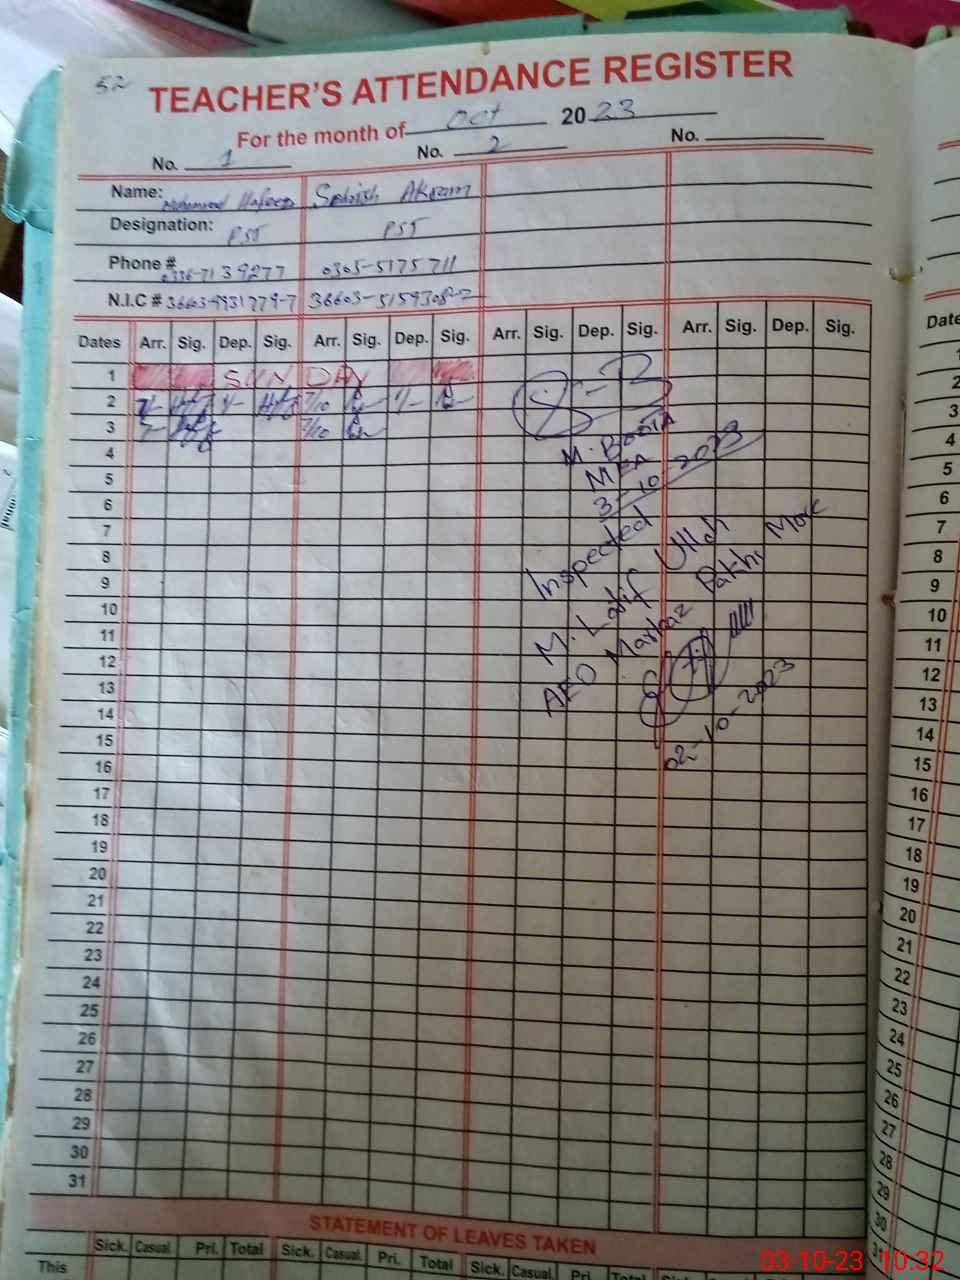 52
TEACHER'S ATTENDANCE REGISTER
For the month of Oct 2023
No. 1 No. 2 No.
Name: Muhammad Hafeez Sehrish Akram
Designation: PST PST
Phone # 0336-7139277 0305-5175711
N.I.C # 36603-9931779-7 36603-5159308-2
Dates Arr. Sig. Dep. Sig. Arr. Sig. Dep. Sig. Arr. Sig. Dep. Sig. Arr. Sig. Dep. Sig.
1 SUN DAY
2
3
4
5
6
7
8
9
10
11
12
13
14
15
16
17
18
19
20
21
22
23
24
25
26
27
28
29
30
31
M. BOOTA
MEA
3-10-2023
Inspected
M. Latif Ullah
AEO Markaz Pakhi More
02-10-2023
STATEMENT OF LEAVES TAKEN
Sick. Casual. Pri. Total Sick. Casual. Pri. Total Sick. Casual. Pri. Total
This
Date
1
2
3
4
5
6
7
8
9
10
11
12
13
14
15
16
17
18
19
20
21
22
23
24
25
26
27
28
29
30
31
03-10-23 10:32